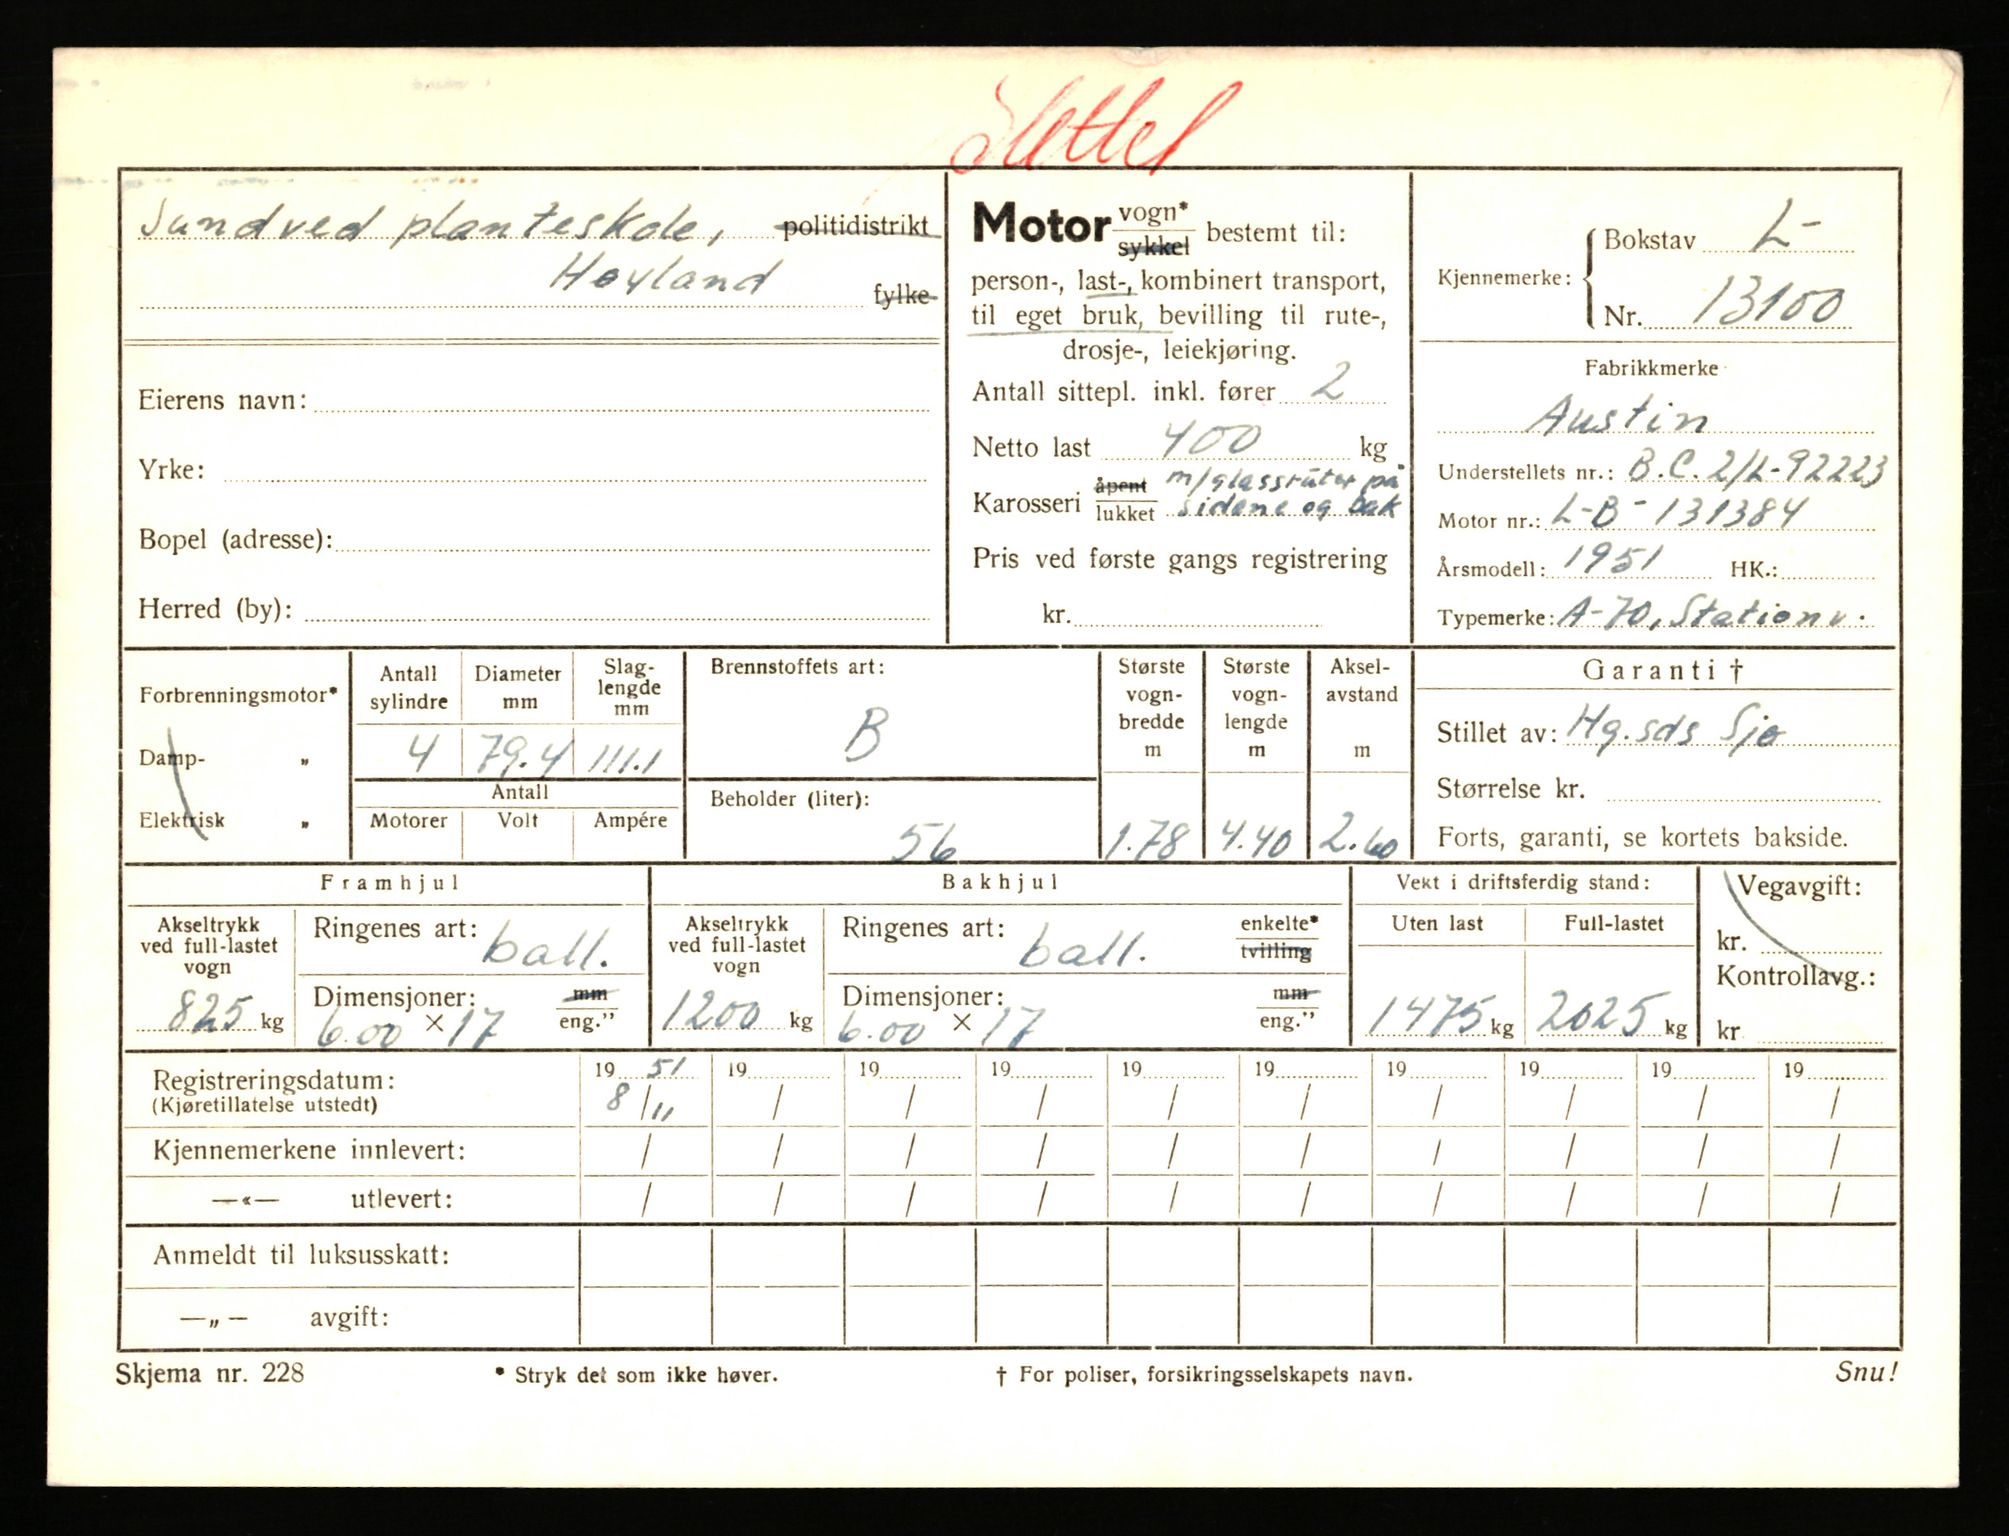 Slettet
Sundved planteskole, politidistrikt
Høyland fylke
Eierens navn:
Yrke:
Bopel (adresse):
Herred (by):
Motor vogn* sykkel bestemt til:
person-, last-, kombinert transport,
til eget bruk, bevilling til rute-,
drosje-, leiekjøring.
Antall sittepl. inkl. fører 2
Netto last 400 kg
Karosseri åpent lukket m/glassruter på
sidene og bak
Pris ved første gangs registrering
kr.
Kjennemerke: Bokstav L-
Nr. 13100
Fabrikkmerke
Austin
Understellets nr.: B.C. 2/L-92223
Motor nr.: L-B-131384
Årsmodell: 1951 HK.:
Typemerke: A-70, Stationv.
Forbrenningsmotor*
Damp- „
Elektrisk „
Antall sylindre 4
Diameter mm 79.4
Slag-
lengde
mm 111.1
Antall
Motorer Volt Ampére
Brennstoffets art:
B
Beholder (liter):
56
Største
vogn-
bredde
m
1.78
Største
vogn-
lengde
m
4.40
Aksel-
avstand
m
2.60
Garanti †
Stillet av: Hg.sds Sjø
Størrelse kr.
Forts, garanti, se kortets bakside.
Framhjul
Akseltrykk
ved full-lastet
vogn
825 kg
Ringenes art: ball.
Dimensjoner: mm
6.00 × 17 eng."
Bakhjul
Akseltrykk
ved full-lastet
vogn
1200 kg
Ringenes art: ball. enkelte*
tvilling
Dimensjoner: mm
6.00 × 17 eng."
Vekt i driftsferdig stand:
Uten last Full-lastet
1475 kg 2025 kg
Vegavgift:
kr.
Kontrollavg.:
kr.
Registreringsdatum: 19 51 19 19 19 19 19 19 19 19 19
(Kjøretillatelse utstedt) 8/11 / / / / / / / / /
Kjennemerkene innlevert: / / / / / / / / / /
—«— utlevert: / / / / / / / / / /
Anmeldt til luksusskatt:
—„— avgift:
Skjema nr. 228 * Stryk det som ikke høver. † For poliser, forsikringsselskapets navn. Snu!